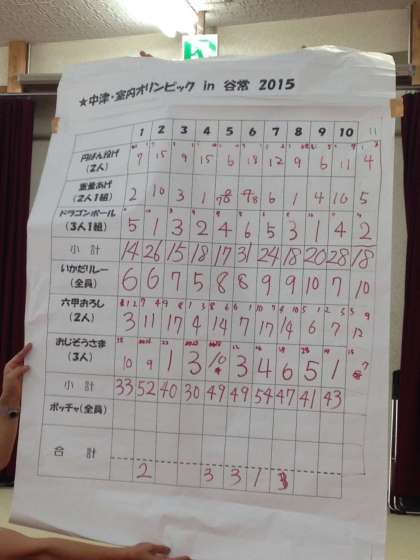 ★中津・室内オリンピック in 谷常 2015
1 2 3 4 5 6 7 8 9 10 11
円ばん投げ (2人) 7 15 9 15 6 18 12 9 6 11 4
重量あげ (2人1組) 2 10 3 1 6 1 4 10 5
ドラゴンボール (3人1組) 5 1 3 2 4 6 5 3 1 4 2
小計 14 26 15 18 17 31 24 18 20 28 18
いかだリレー (全員) 6 6 7 5 8 8 9 9 10 7 10
六甲おろし (2人) 3 11 17 4 14 7 17 14 6 7 12
おじぞうさま (3人) 10 9 1 3 10 3 4 6 5 1 7
小計 33 52 40 30 49 49 54 47 41 43
ボッチャ(全員)
合計 2 3 3 1